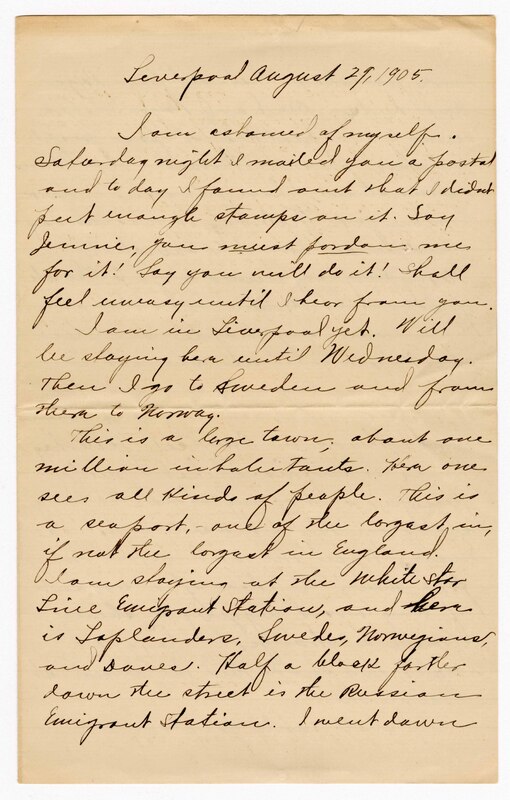 Liverpool August 29, 1905.
I am ashamed of myself.
Saturday night I mailed you a postal
and to day I found out that I didn't
put enough stamps on it. Say
Jennie, you must pardon me
for it! Say you will do it! Shall
feel uneasy until I hear from you.
I am in Liverpool yet. Will
be staying here until Wednesday.
Then I go to Sweden and from
there to Norway.
This is a large town, about one
million inhabitants. Here one
sees all kinds of people. This is
a seaport, - one of the largest in,
if not the largest in England.
I am staying at the White Star
Line Emigrant Station, and here
is Laplanders, Swedes, Norwegians,
and Danes. Half a block farther
down the street is the Russian
Emigrant Station. I went down